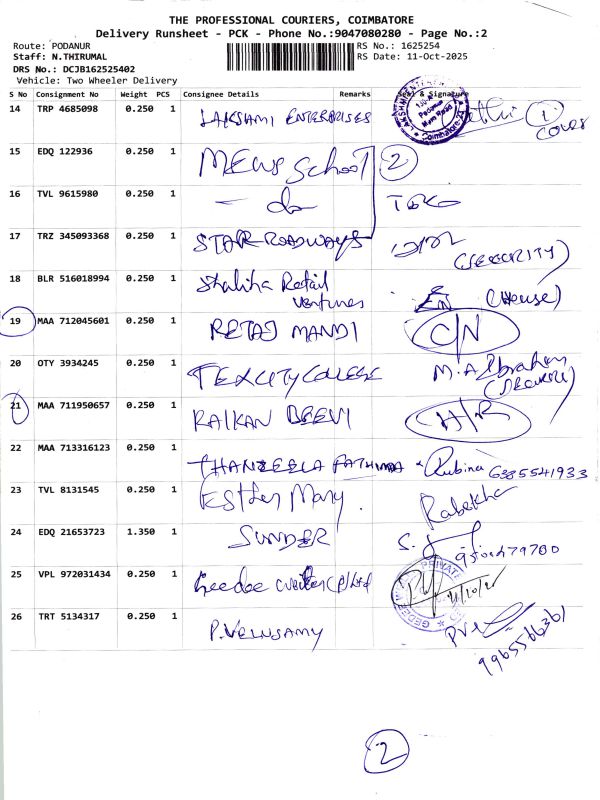 THE PROFESSIONAL COURIERS, COIMBATORE
Delivery Runsheet - PCK - Phone No.:9047080280 - Page No.:2
Route: PODANUR RS No.: 1625254
Staff: N.THIRUMAL RS Date: 11-Oct-2025
DRS No.: DCJB162525402
Vehicle: Two Wheeler Delivery
S No Consignment No Weight PCS Consignee Details Remarks & Signature
14 TRP 4685098 0.250 1 LAKSHMI ENTERPRISES 1 COVER
15 EDQ 122936 0.250 1 MEWS School 2
16 TVL 9615980 0.250 1 - do
17 TRZ 345093368 0.250 1 STAR ROADWAYS (SECURITY)
18 BLR 516018994 0.250 1 Shaliha Retail Ventures (House)
19 MAA 712045601 0.250 1 RETAJ MANDI C/N
20 OTY 3934245 0.250 1 TEXCITY COLLEGE M.A Ibrahim (SECURITY)
21 MAA 711950657 0.250 1 RAIKAN BEEVI H/R
22 MAA 713316123 0.250 1 THANZEELA FATHIMA Rubina 6385541933
23 TVL 8131545 0.250 1 Esther Mary. Rabekha
24 EDQ 21653723 1.350 1 SUNDER S.
25 VPL 972031434 0.250 1 Geedee (P) Ltd
26 TRT 5134317 0.250 1 P.VELUSAMY PVel 9965566361
2